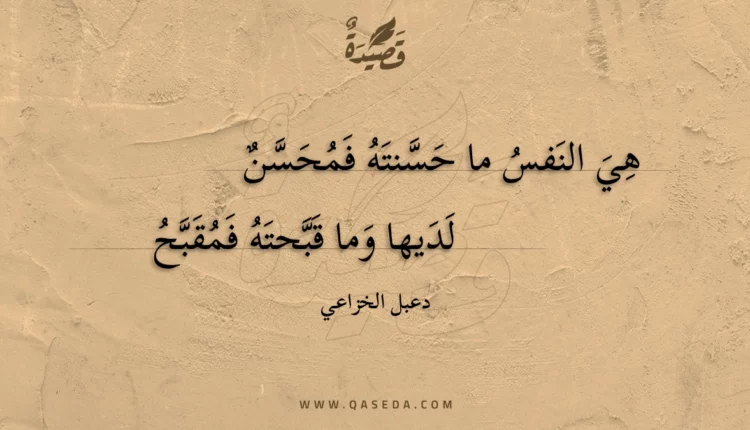 قَصِيدَةٌ
هِيَ النَفسُ ما حَسَّنتَهُ فَمُحَسَّنٌ
لَدَيها وَما قَبَّحتَهُ فَمُقَبَّحُ
دعبل الخزاعي
WWW.QASEDA.COM